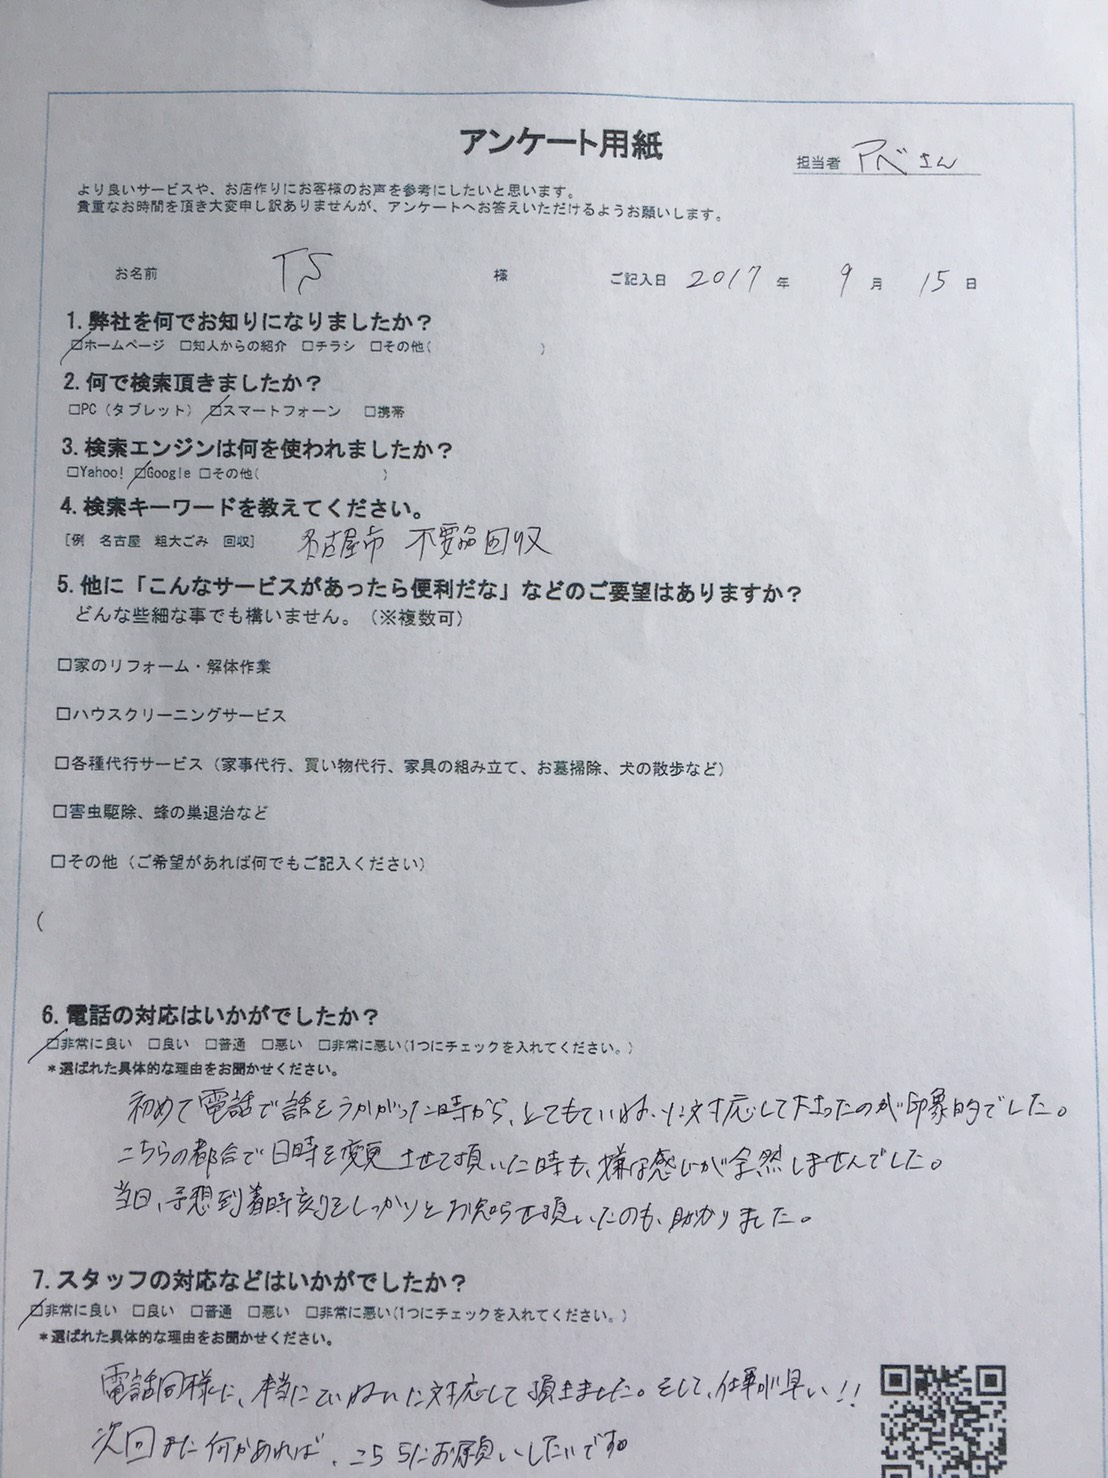 アンケート用紙
担当者 アベさん
より良いサービスや、お店作りにお客様のお声を参考にしたいと思います。
貴重なお時間を頂き大変申し訳ありませんが、アンケートへお答えいただけるようお願いします。
お名前 TS 様 ご記入日 2017 年 9 月 15 日
1. 弊社を何でお知りになりましたか？
☑ホームページ □知人からの紹介 □チラシ □その他( )
2. 何で検索頂きましたか？
□PC（タブレット） ☑スマートフォーン □携帯
3. 検索エンジンは何を使われましたか？
□Yahoo! ☑Google □その他( )
4. 検索キーワードを教えてください。
[例 名古屋 粗大ごみ 回収] 名古屋市 不要品回収
5. 他に「こんなサービスがあったら便利だな」などのご要望はありますか？
どんな些細な事でも構いません。（※複数可）
□家のリフォーム・解体作業
□ハウスクリーニングサービス
□各種代行サービス（家事代行、買い物代行、家具の組み立て、お墓掃除、犬の散歩など）
□害虫駆除、蜂の巣退治など
□その他（ご希望があれば何でもご記入ください）
(
6. 電話の対応はいかがでしたか？
☑非常に良い □良い □普通 □悪い □非常に悪い(1つにチェックを入れてください。)
*選ばれた具体的な理由をお聞かせください。
初めて電話で話をうかがった時から、とてもていねいに対応して下さったのが印象的でした。
こちらの都合で日時を変更させて頂いた時も、嫌な感じが全然しませんでした。
当日、予想到着時刻をしっかりとお知らせ頂いたのも、助かりました。
7. スタッフの対応などはいかがでしたか？
☑非常に良い □良い □普通 □悪い □非常に悪い(1つにチェックを入れてください。)
*選ばれた具体的な理由をお聞かせください。
電話同様に、本当にていねいに対応して頂きました。そして、仕事が早い!!
次回また何かあれば、こちらにお願いしたいです。